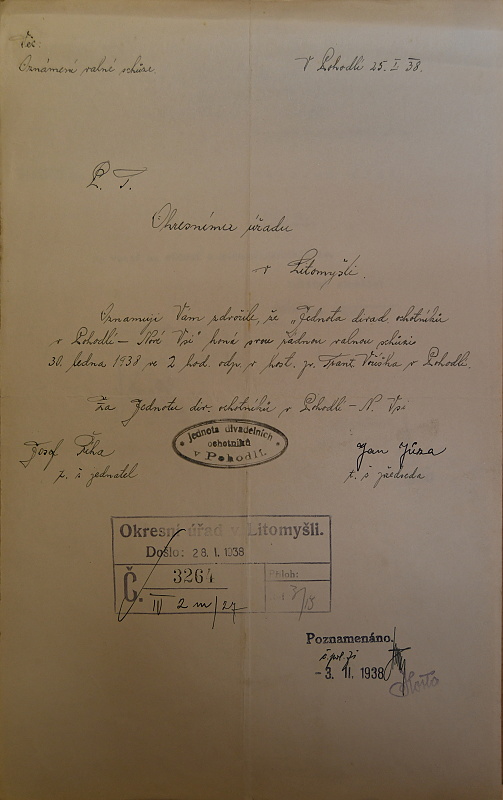 Věc:
Oznámení valné schůze.
V Pohodlí 25. I. 38.
P. T.
Okresnímu úřadu
v Litomyšli.
Oznamuji Vám zdvořile, že "Jednota divad. ochotníků
v Pohodlí – Nové Vsi" koná svou řádnou valnou schůzi
30. ledna 1938 ve 2 hod. odp. v host. p. Frant. v Pohodlí.
Za Jednotu div. ochotníků v Pohodlí – N. Vsi
Josef Říha
t. č. jednatel
Jednota divadelních
ochotníků
v Pohodlí.
Jan Jůza
t. č. předseda
Okresní úřad v Litomyšli.
Došlo: 28. 1. 1938
Č. 3264
Příloh:
IV 2 m/27
Poznamenáno.
-3. II. 1938